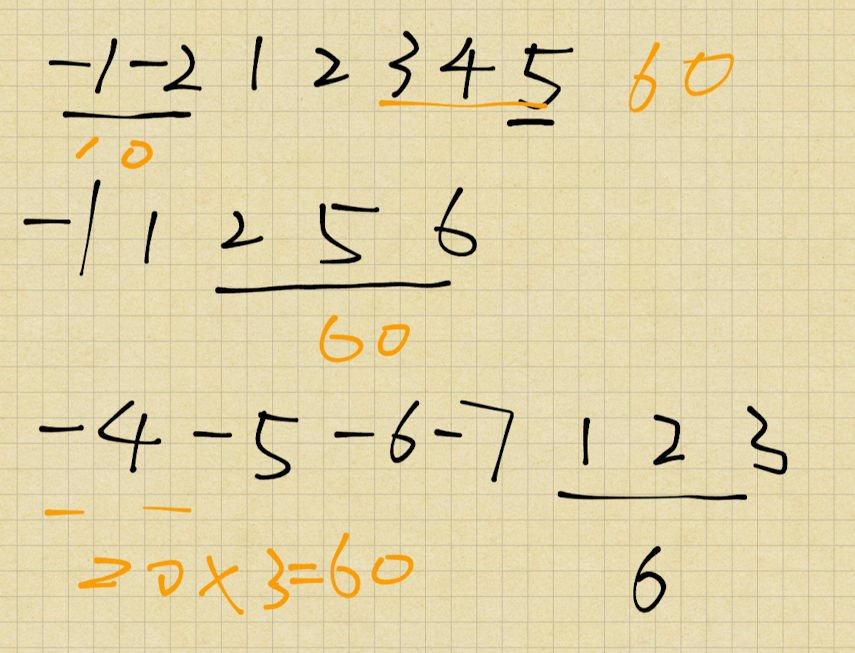 -1 -2 1 2 3 4 5 60
10
-1 1 2 5 6
60
-4 -5 -6 -7 1 2 3
20×3=60 6